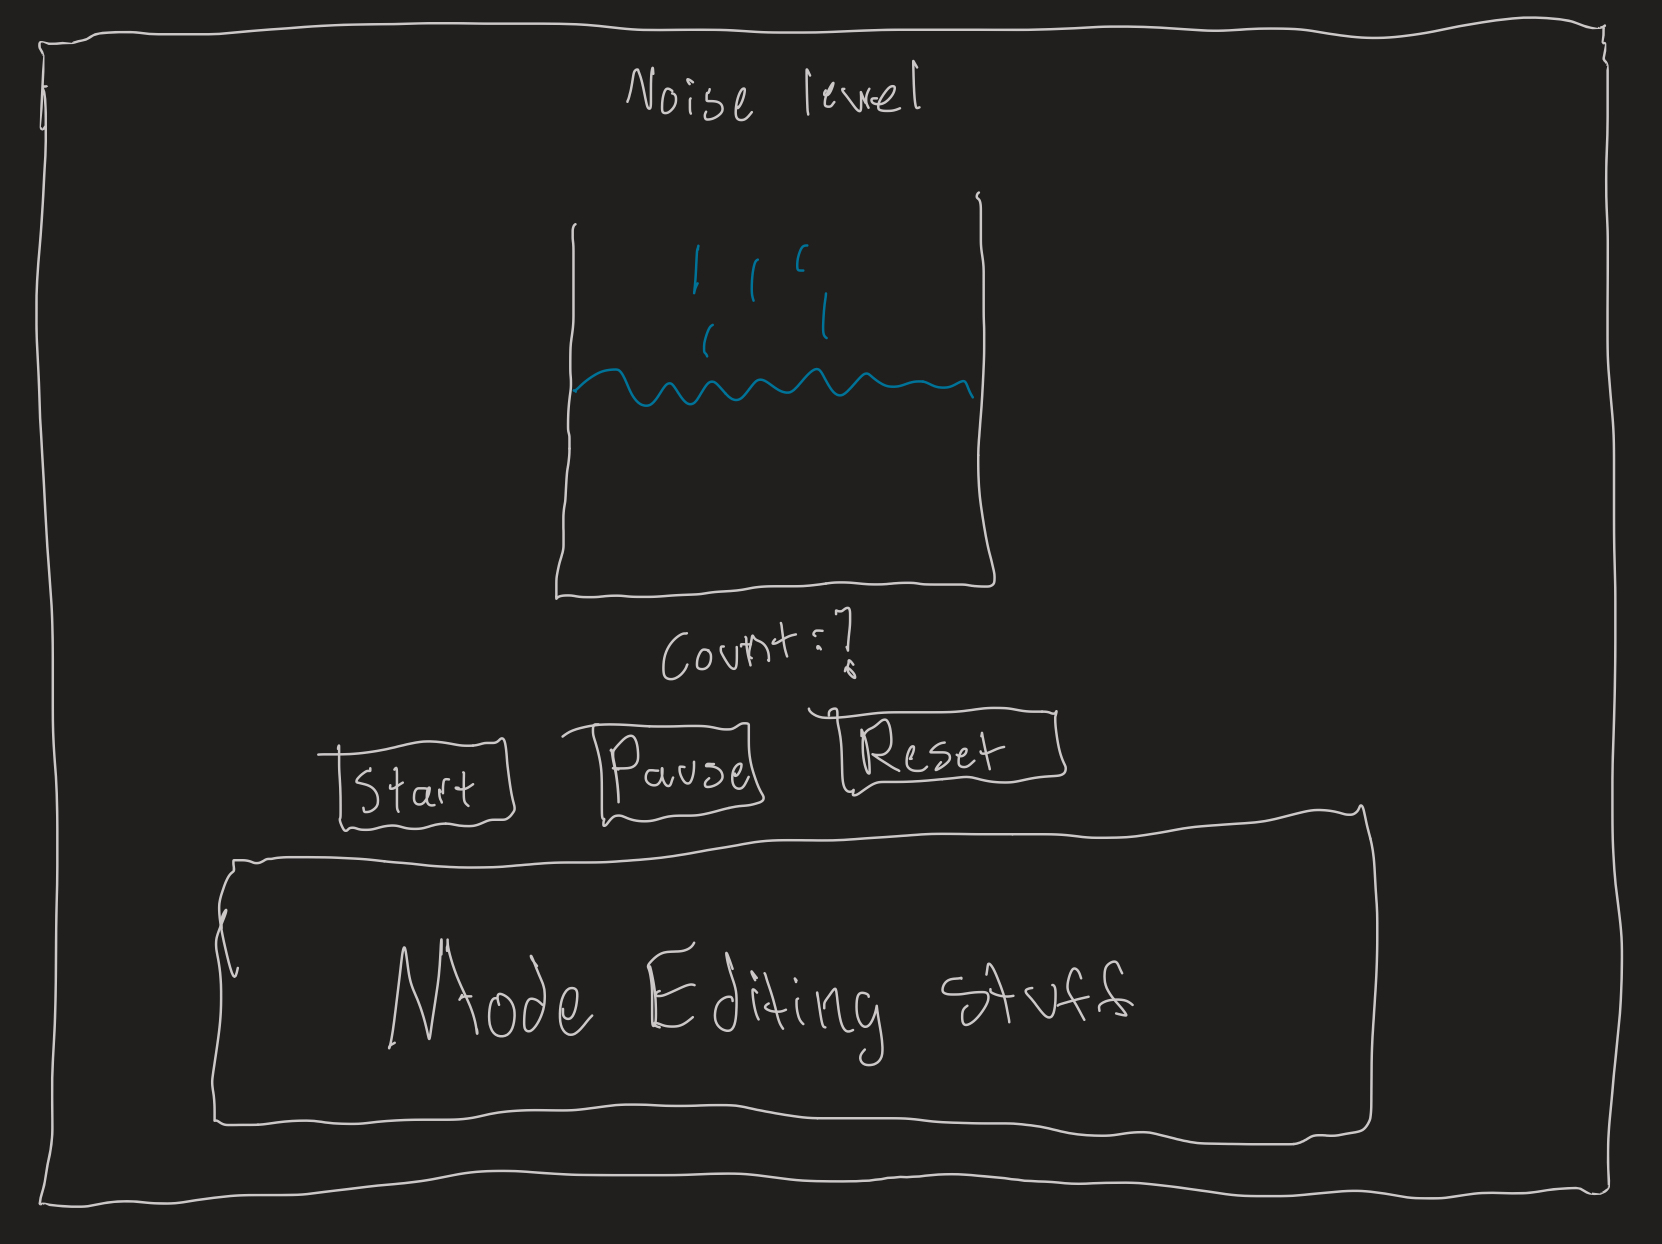 Noise level
Count: ?
Start Pause Reset
Mode Editing stuff